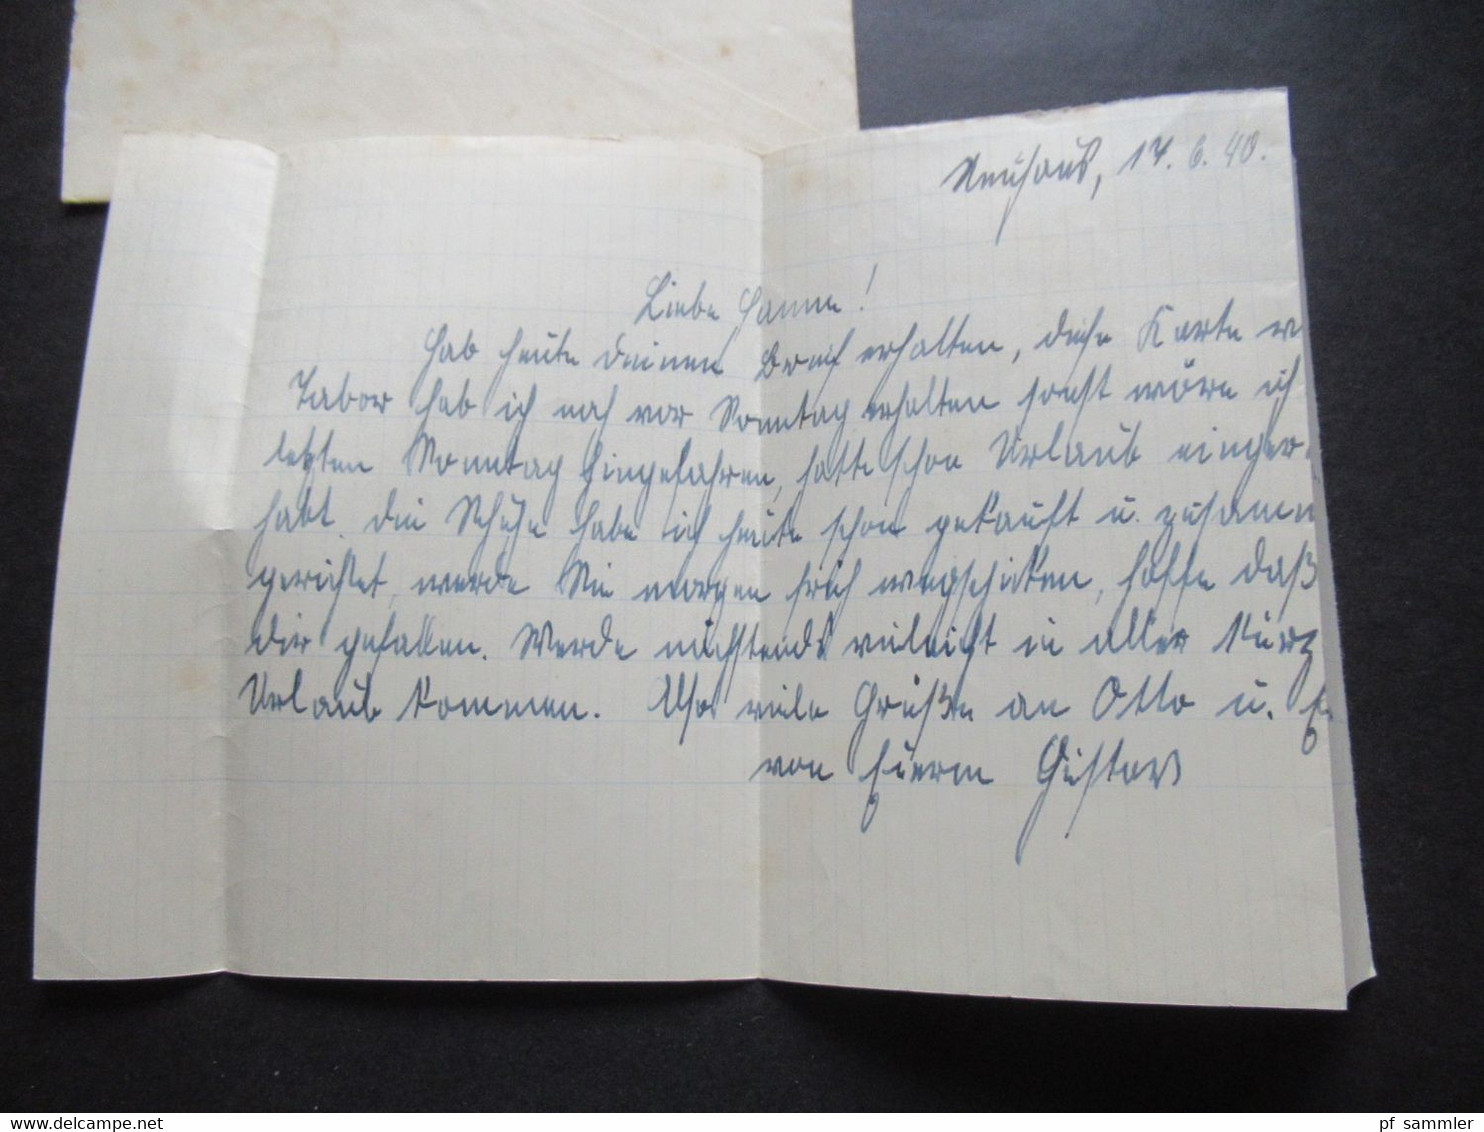 Neuhaus, 14. 6. 40.
Liebe Hanne!
Hab heute deinen Brief erhalten, diese Karte v
Tabor hab ich noch vor Sonntag erhalten sonst wäre ich
letzten Sonntag hingefahren, hatte schon Urlaub einger
habt. Die Schuhe habe ich heute schon gekauft u. zusamm
gerichtet, werde Sie morgen früh wegschicken, hoffe daß
dir gefallen. Werde nächstends vieleicht in aller Kürz
Urlaub kommen. Also viele Grüße an Otto u. E
von Euerm Gustav
pf sammler
www.delcampe.net